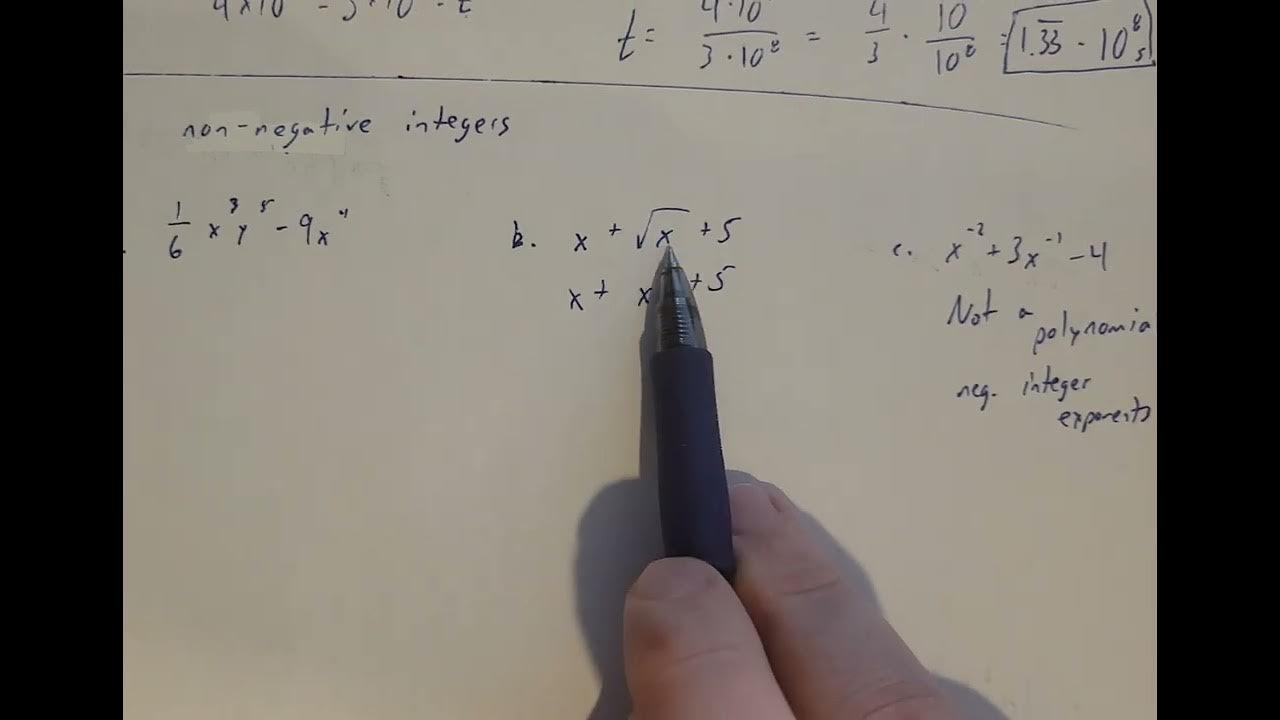 t = 4·10 / 3·10⁸ = 4/3 · 10/10⁸ = 1.33 · 10⁸ s
non-negative integers
1/6 x³y⁵ - 9x⁴
b. x + √x + 5
x + x + 5
c. x⁻² + 3x⁻¹ - 4
Not a
polynomia
neg. integer
exponents